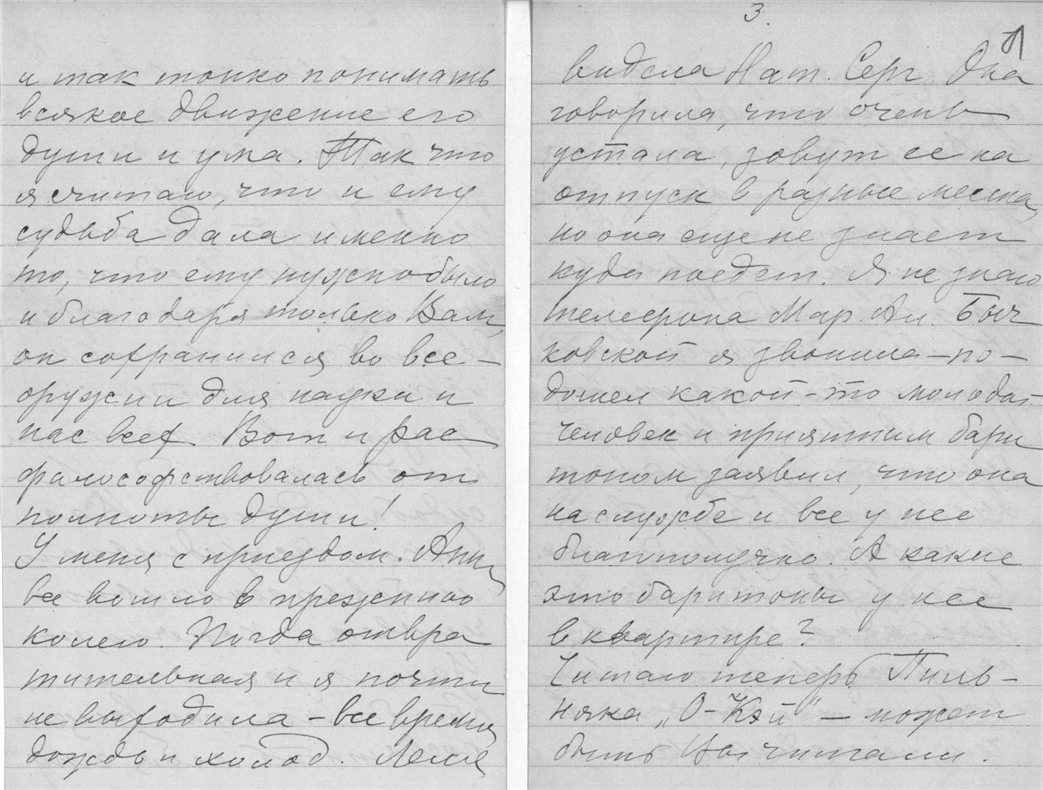 и так тонко понимать
всякое движение его
души и ума. Так что
я считаю, что и ему
судьба дала именно
то, что ему нужно было
и благодаря только Вам,
он сохранился во все-
оружии для науки и
нас всех. Вот и рас
философствовалась от
полноты души!
У меня с приездом. Анны
все вошло в прежнюю
колею. Погода отвра
тительная и я почти
не выходила – все время
дождь и холод. Леля
3.
видела Нат. Серг. Она
говорила, что очень
устала, зовут ее на
отпуск в разные места,
но она еще не знает
куда поедет. Я не знаю
телефона Мар. Ал. Быч
ковской я звонила – по-
дошел какой-то молодой
человек и приятным бари
тоном заявил, что она
на службе и все у нее
благополучно. А какие
это баритоны у нее
в квартире?
Читаю теперь Пиль-
няка „О-Кэй" – может
быть Вы читали.